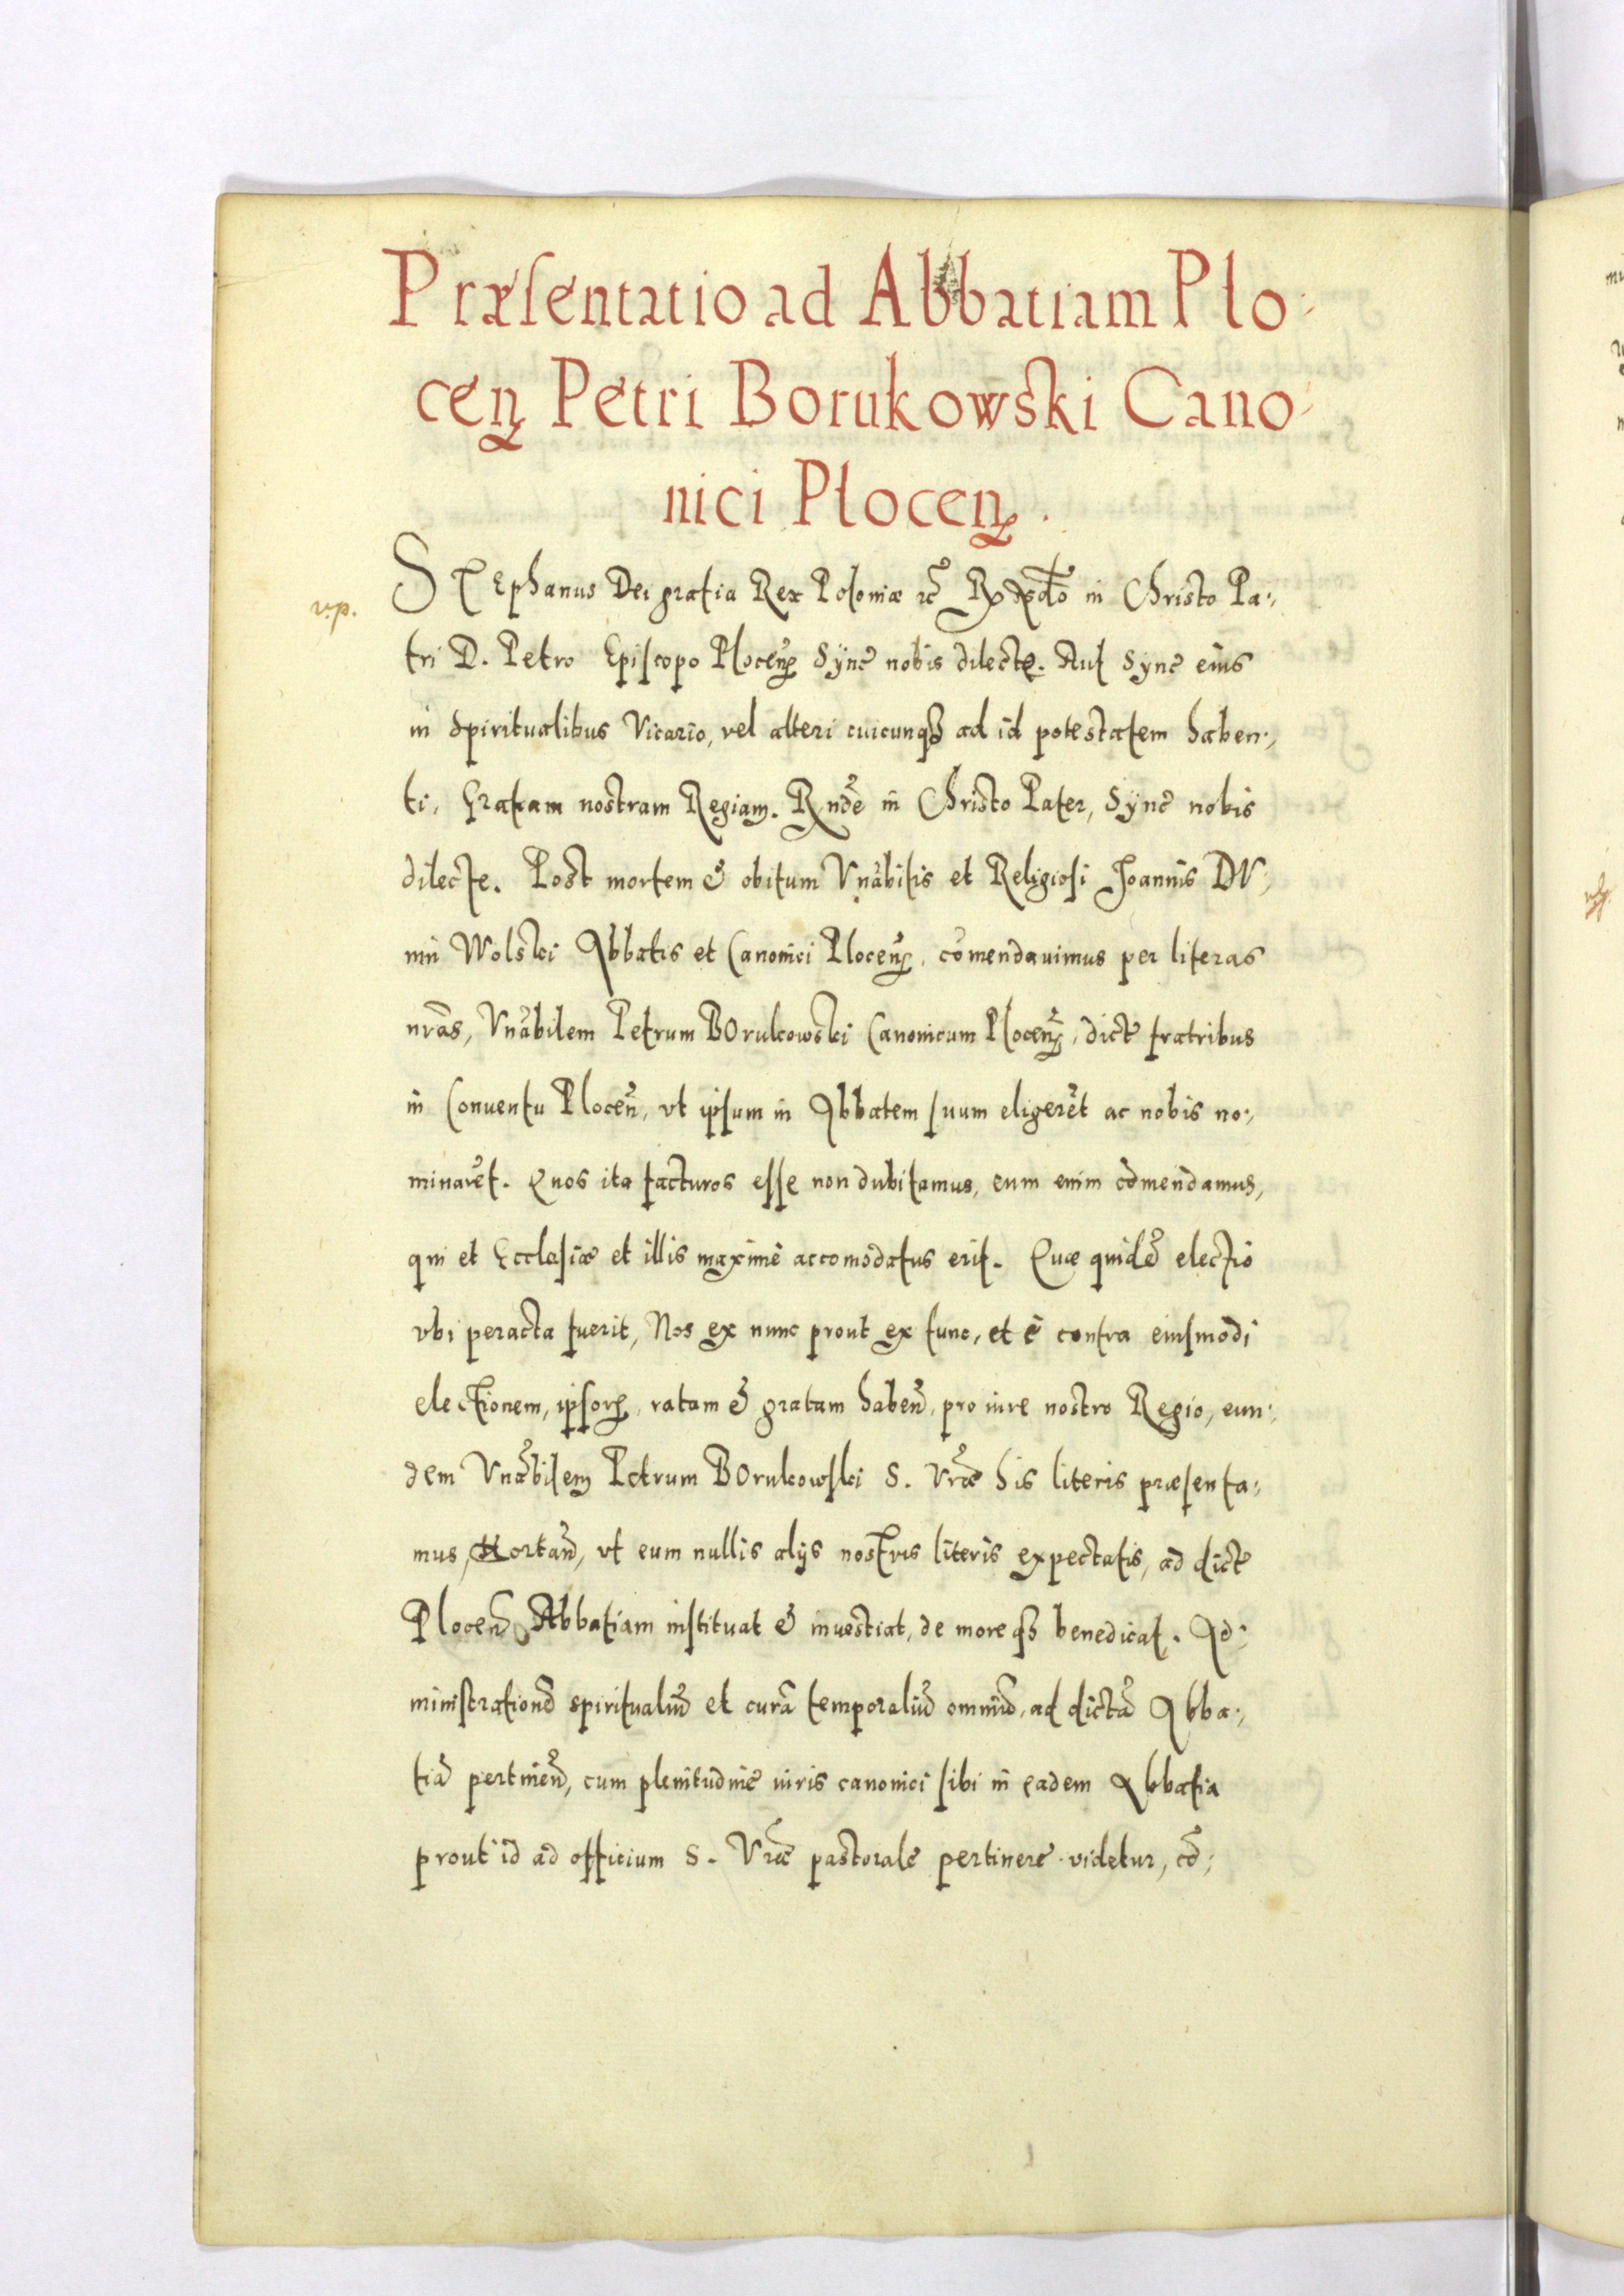 Præsentatio ad Abbatiam Plo⸗
ceñ Petri Borukowski Cano⸗
nici Ploceñ.
v.p.
STEphanus Dei gratia Rex Poloniæ rc̃ in Christo Pa⸗
tri D. Petro Episcopo Ploceñ Sync̃ nobis dilecte. Aut Sync̃ eius
in spiritualibus Vicario, vel alteri cuicunq3 ad id potestatem haben⸗
ti, Gratiam nostram Regiam. Rnde͂ in Christo Pater, Sync̃ nobis
dilecte. Post mortem & obitum Vnãbilis et Religiosi Joannis DV⸗
nin Wolski Abbatis et Canonici Ploceñ, cõmendauimus per literas
nrãs, Vnãbilem Petrum BOrukowski Canonicum Ploceñ, dict̃ fratribus
in Conuentu Ploceñ, vt ipsum in Abbatem suum eligerẽt ac nobis no⸗
minarẽt. Quos ita facturos esse non dubitamus, eum enim cõmendamus,
qui et Ecclesiæ et illis maximè accomõdatus erit. Quæ quidẽ electio
vbi peracta fuerit, Nos ex nunc prout ex tunc, et è contra eiusmodi
electionem, ipsorꝝ, ratam & gratam habeñ, pro iure nostro Regio, eun⸗
dem Vnãbilem Petrum BOrukowski S. Vræ̃ his literis præsenta⸗
mus, Hortañ, vt eum nullis alijs nostris literis expectatis, ad dict̃
Ploceñ Abbatiam instituat & inuestiat, de moreq3 benedicat. Ad⸗
ministrationẽ spiritualiũ et curã temporaliũ omniũ, ad dictã Abba⸗
tiã pertineñ, cum plenitudine iuris canonici sibi in eadem Abbatia
prout id ad officium S. Vræ̃ pastorale pertinere videtur, cõ⸗